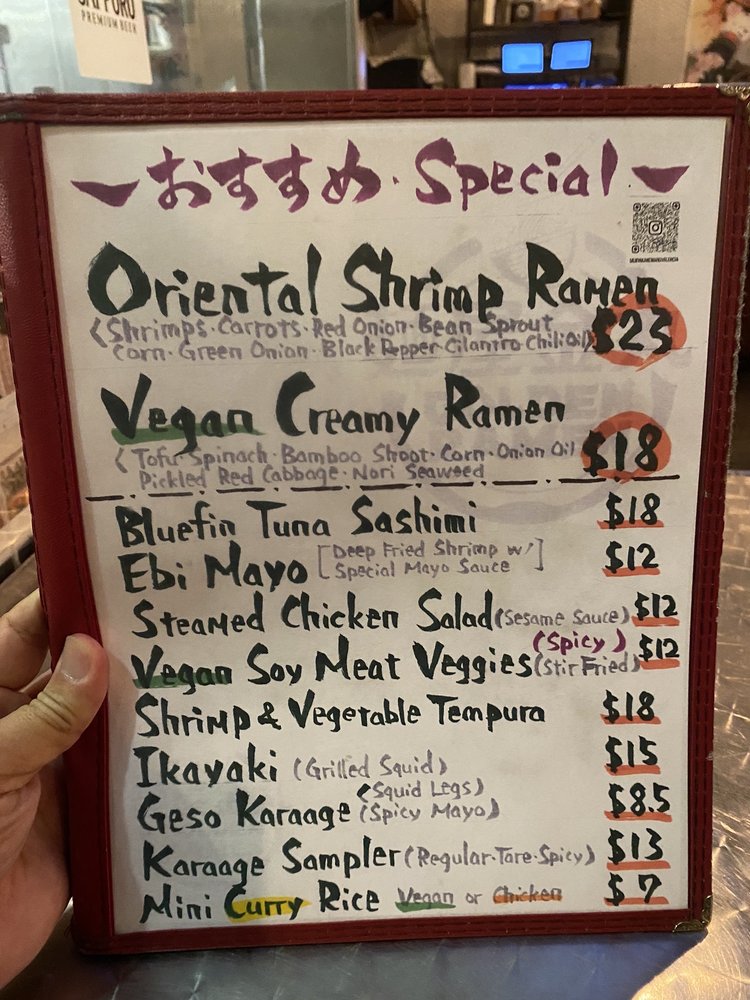 SAPPORO
PREMIUM BEER
おすすめ・Special
Oriental Shrimp Ramen
(Shrimps・Carrots・Red Onion・Bean Sprout
Corn・Green Onion・Black Pepper・Cilantro Chili Oil) $23
Vegan Creamy Ramen
(Tofu・Spinach・Bamboo Shoot・Corn・Onion Oil $18
Pickled Red Cabbage・Nori Seaweed
Bluefin Tuna Sashimi $18
Ebi Mayo [Deep Fried Shrimp w/ Special Mayo Sauce] $12
Steamed Chicken Salad (Sesame Sauce) $12
(Spicy)
Vegan Soy Meat Veggies (Stir Fried) $12
Shrimp & Vegetable Tempura $18
Ikayaki (Grilled Squid) $15
Geso Karaage (Squid Legs) (Spicy Mayo) $8.5
Karaage Sampler (Regular・Tare・Spicy) $13
Mini Curry Rice Vegan or Chicken $7